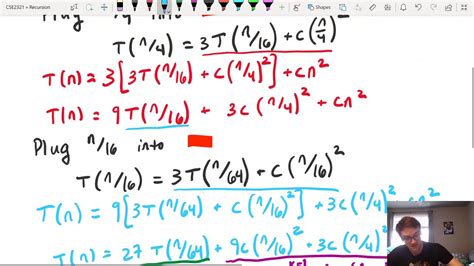 CSE2321 > Recursion
Plug n/4 into
T(n/4) = 3T(n/16) + c(n/4)²
T(n) = 3[3T(n/16) + c(n/4)²] + cn²
T(n) = 9T(n/16) + 3c(n/4)² + cn²
Plug n/16 into
T(n/16) = 3T(n/64) + c(n/16)²
T(n) = 9[3T(n/64) + c(n/16)²] + 3c(n/4)²
T(n) = 27T(n/64) + 9c(n/16)² + 3c(n/4)²